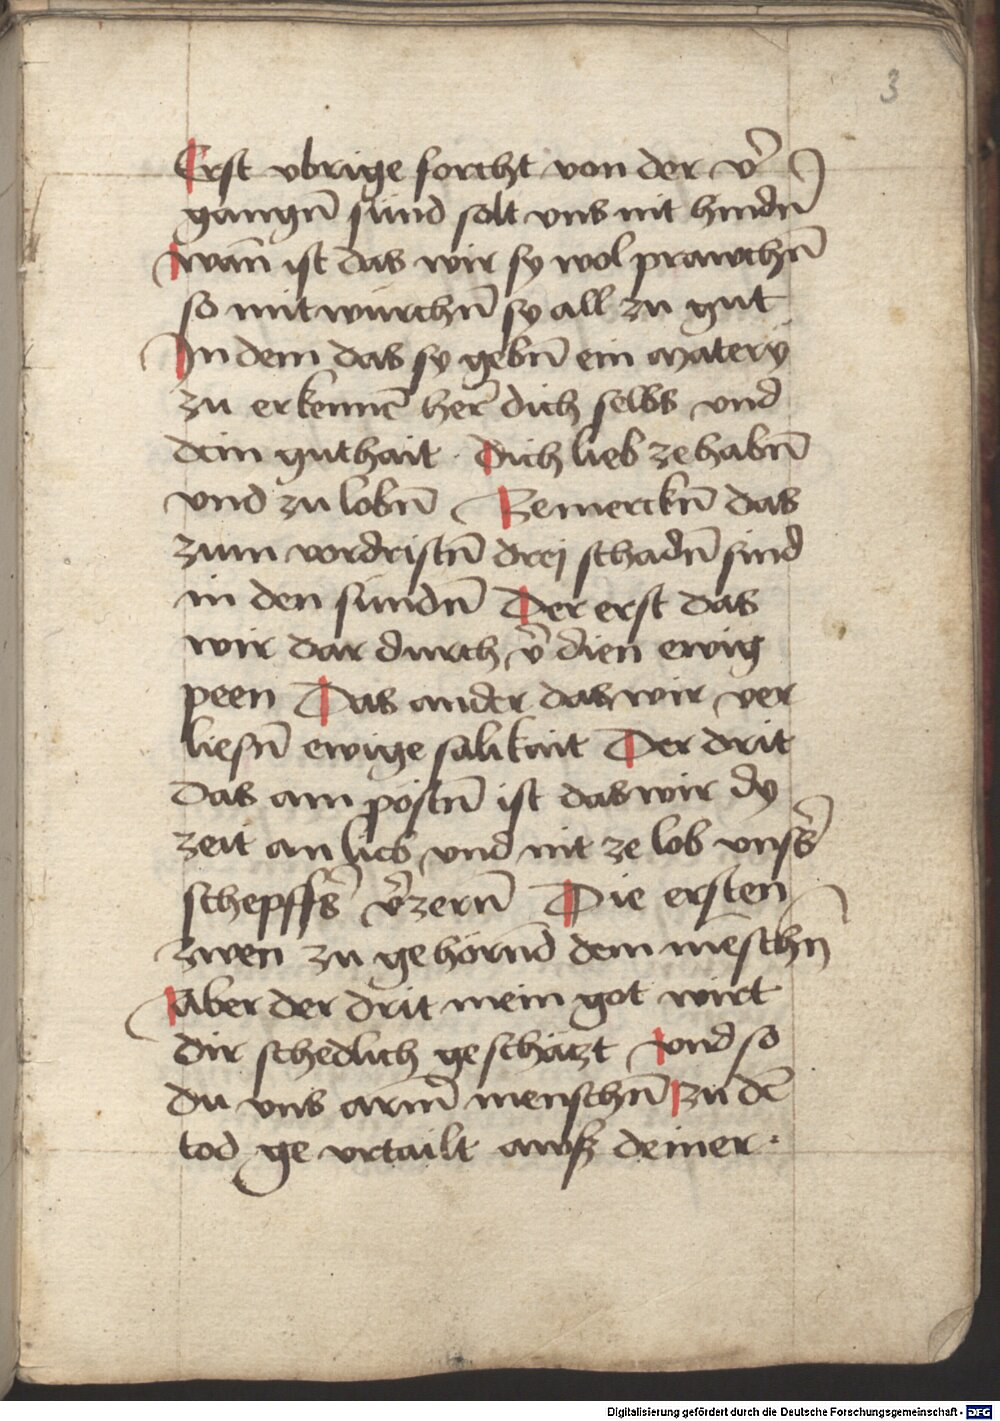 3
Erst vbrige forcht von der v̉
gangn̄ sünd solt vns nit hindn̄
wān ist das wir sy wol prawchn̄
so mitwürchn̄ sy all zu gut
In dem das sy gebn̄ ein matery
zu erkennē her̄ dich selbs vnd
dein guthait · Dich lieb ze habn̄
vnd zu lobn̄ Zemerckn̄ das
zum vordristn̄ drej schadn̄ sind
in den sündn̄ Der erst das
wir dar durch v̉ dien ewig
peen Das ander das wir ver
liesn̄ ewige salikait Der drit
das am postn̄ ist das wir dy
zeit an lieb vnd nit ze lob vnss̉
schepffs̉ v̉zern̄ Die ersten
zwen zu gehörnd dem mēschn̄
Aber der drit mein got wirt
dir schedlich geschäzt vnd so
du vns arm̄ menschn̄ zu dē
tod ge vrtailt awß deiner ·
Digitalisierung gefördert durch die Deutsche Forschungsgemeinschaft - DFG